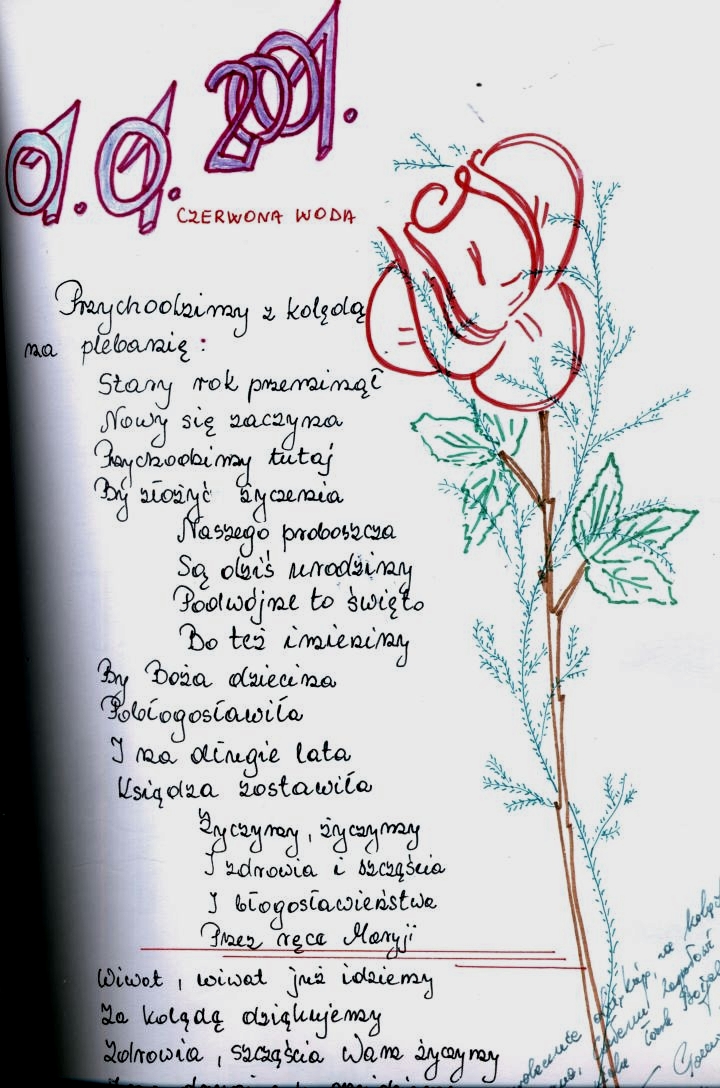 01.01.2001.
CZERWONA WODA
Przychodzimy z kolędą
na plebanię:
Stary rok przeminął
Nowy się zaczyna
Przychodzimy tutaj
By złożyć życzenia
Naszego proboszcza
Są dziś urodziny
Podwójne to święto
Bo też imieniny
By Boża dziecina
Pobłogosławiła
I na długie lata
Księdza zostawiła
Życzymy, życzymy
I zdrowia i szczęścia
I błogosławieństwa
Przez ręce Maryji
Wiwat, wiwat już idziemy
Za kolędą dziękujemy
Zdrowia, szczęścia Wam życzymy